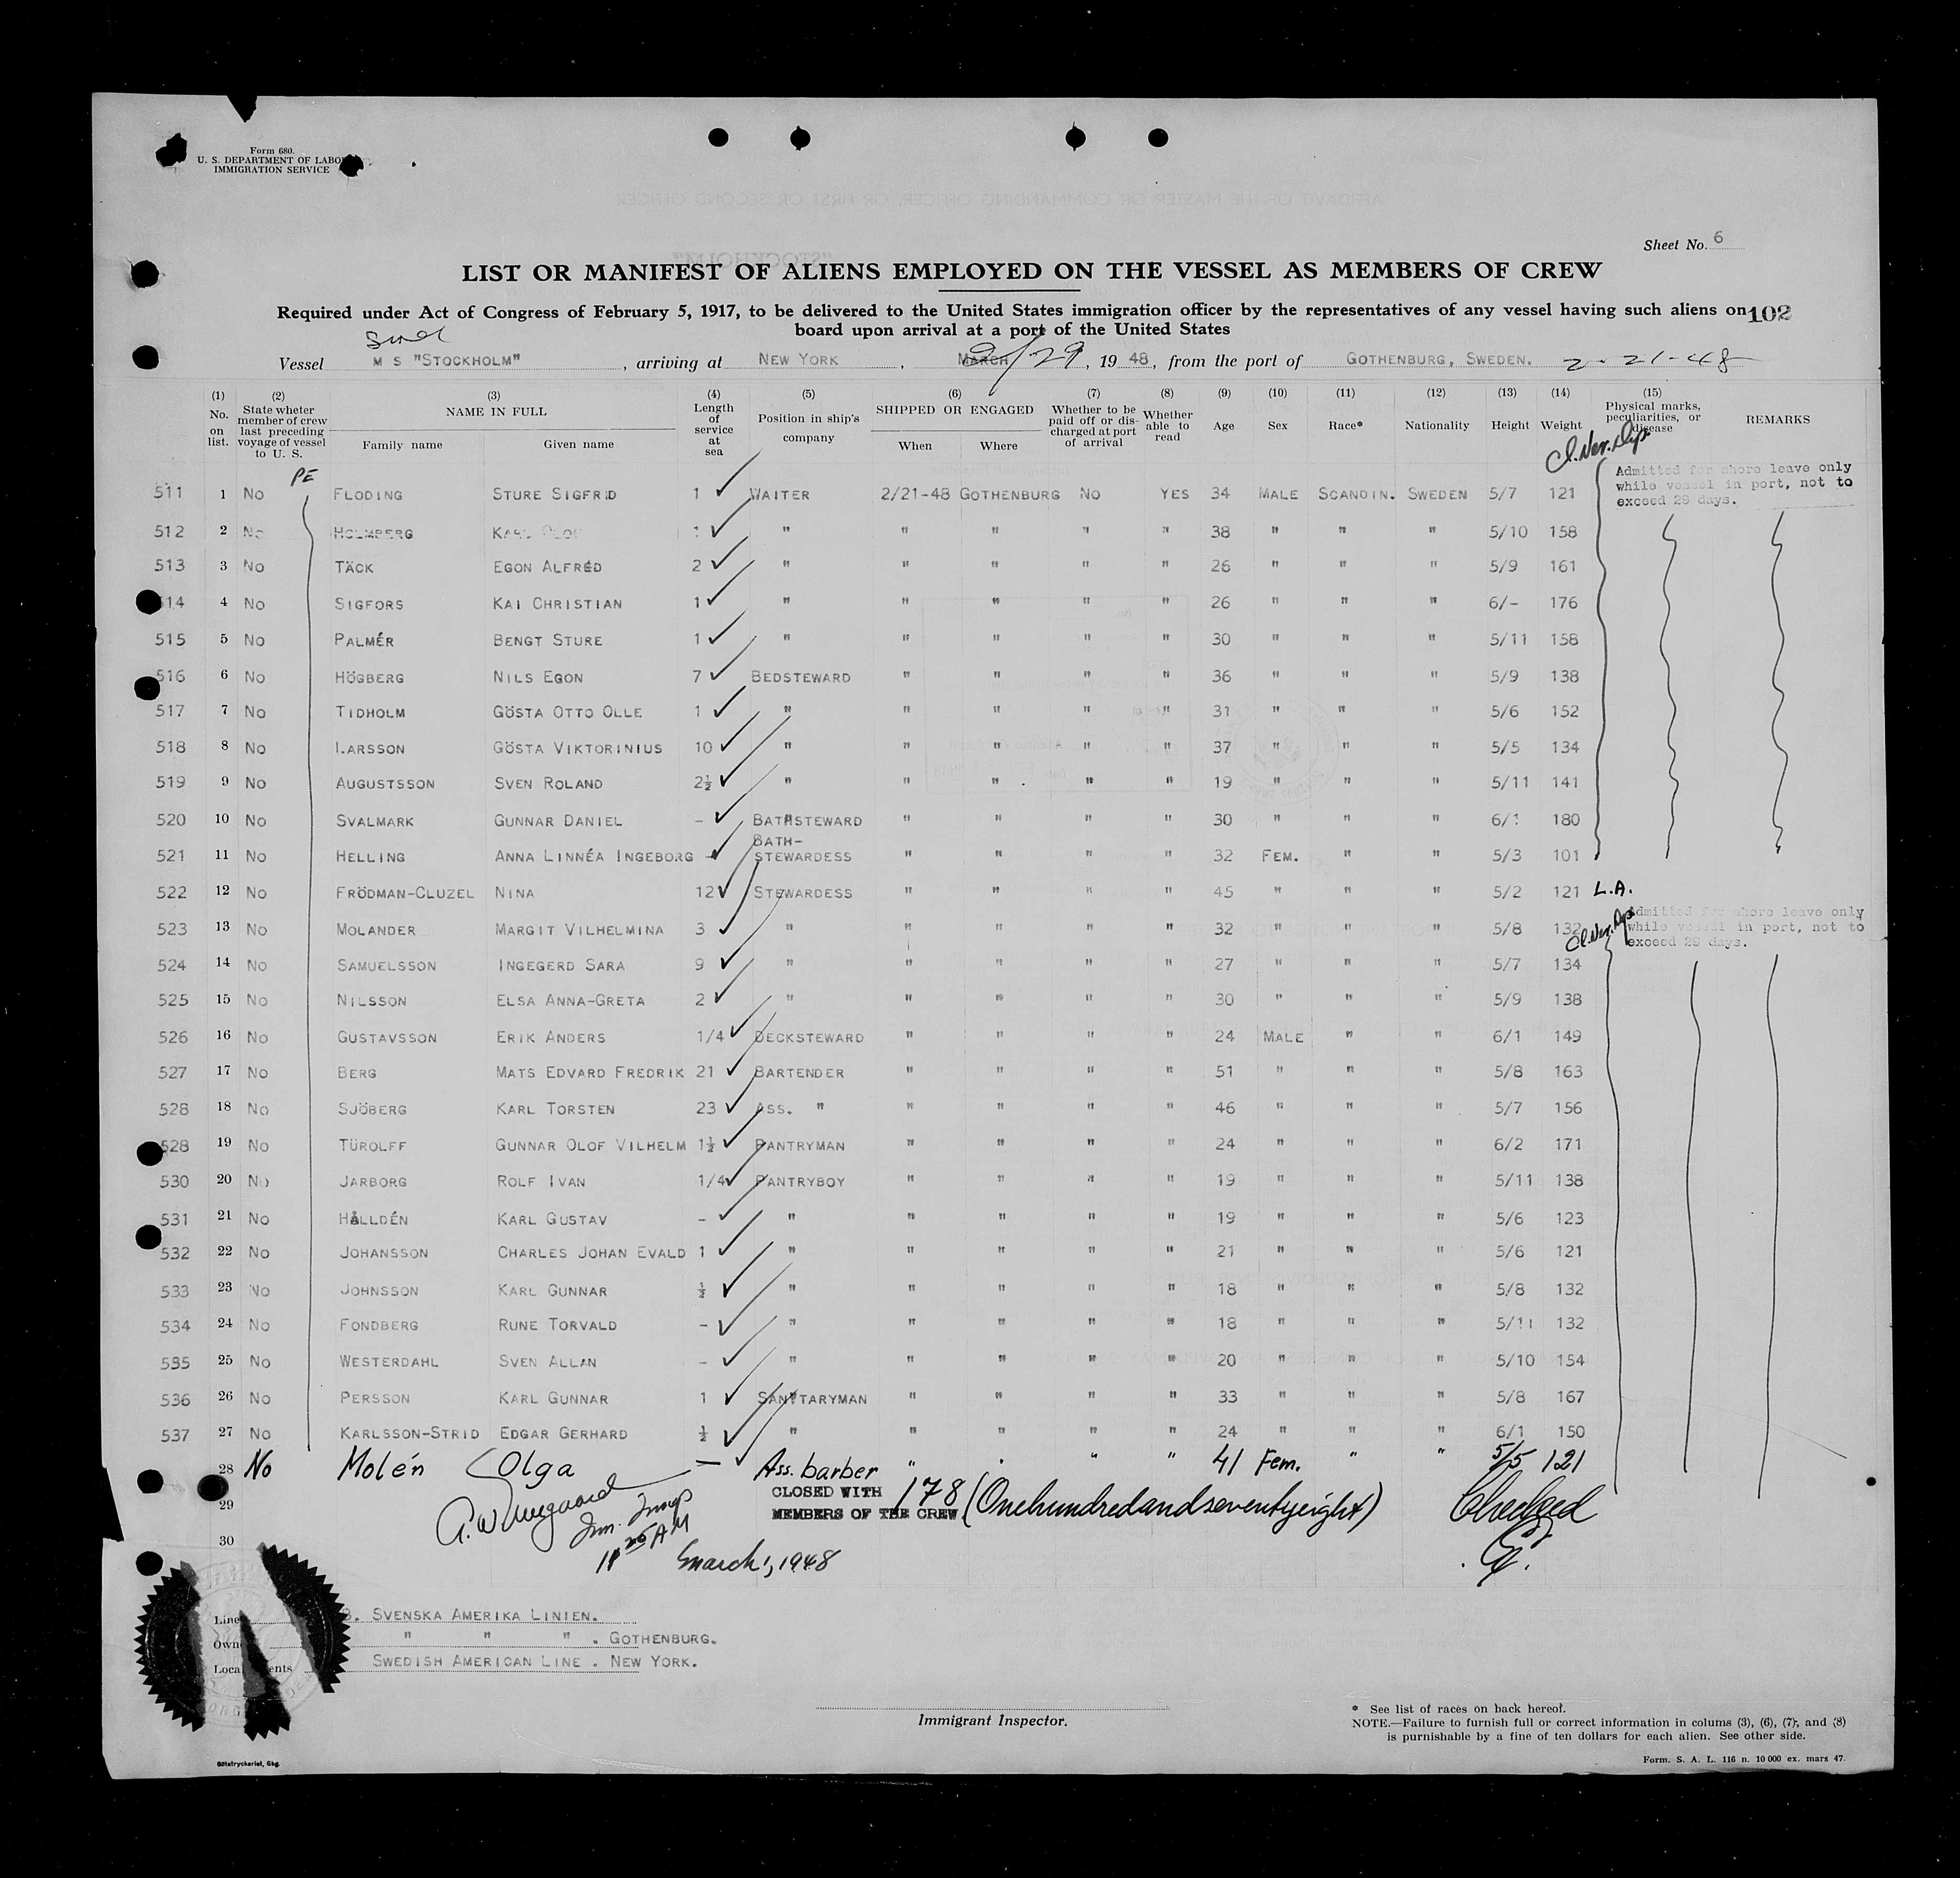 Form 680.
U. S. DEPARTMENT OF LABOR
IMMIGRATION SERVICE
Sheet No. 6
LIST OR MANIFEST OF ALIENS EMPLOYED ON THE VESSEL AS MEMBERS OF CREW
Required under Act of Congress of February 5, 1917, to be delivered to the United States immigration officer by the representatives of any vessel having such aliens on 102
board upon arrival at a port of the United States
Vessel M S "STOCKHOLM", arriving at NEW YORK, MARCH 2/29, 1948, from the port of GOTHENBURG, SWEDEN. 2-21-48
(1) No. on list.
(2) State wheter member of crew last preceding voyage of vessel to U. S.
(3) NAME IN FULL Family name Given name
(4) Length of service at sea
(5) Position in ship's company
(6) SHIPPED OR ENGAGED When Where
(7) Whether to be paid off or discharged at port of arrival
(8) Whether able to read
(9) Age
(10) Sex
(11) Race*
(12) Nationality
(13) Height
(14) Weight
(15) Physical marks, peculiarities, or disease
REMARKS
PE
Admitted for shore leave only
while vessel in port, not to
exceed 29 days.
511 1 No FLODING STURE SIGFRID 1 WAITER 2/21-48 GOTHENBURG NO YES 34 MALE SCANDIN. SWEDEN 5/7 121
512 2 No HOLMBERG KARL OLOF 1 " " " " " 38 " " " 5/10 158
513 3 No TÄCK EGON ALFRÉD 2 " " " " " 26 " " " 5/9 161
514 4 No SIGFORS KAI CHRISTIAN 1 " " " " " 26 " " " 6/- 176
515 5 No PALMÉR BENGT STURE 1 " " " " " 30 " " " 5/11 158
516 6 No HÖGBERG NILS EGON 7 BEDSTEWARD " " " " 36 " " " 5/9 138
517 7 No TIDHOLM GÖSTA OTTO OLLE 1 " " " " " 31 " " " 5/6 152
518 8 No LARSSON GÖSTA VIKTORINIUS 10 " " " " " 37 " " " 5/5 134
519 9 No AUGUSTSSON SVEN ROLAND 2½ " " " " " 19 " " " 5/11 141
520 10 No SVALMARK GUNNAR DANIEL - BATHSTEWARD " " " " 30 " " " 6/1 180
521 11 No HELLING ANNA LINNÉA INGEBORG - BATH-STEWARDESS " " " " 32 FEM. " " 5/3 101
522 12 No FRÖDMAN-CLUZEL NINA 12 STEWARDESS " " " " 45 " " " 5/2 121 L.A.
523 13 No MOLANDER MARGIT VILHELMINA 3 " " " " " 32 " " " 5/8 132
Admitted for shore leave only
while vessel in port, not to
exceed 29 days.
524 14 No SAMUELSSON INGEGERD SARA 9 " " " " " 27 " " " 5/7 134
525 15 No NILSSON ELSA ANNA-GRETA 2 " " " " " 30 " " " 5/9 138
526 16 No GUSTAVSSON ERIK ANDERS 1/4 DECKSTEWARD " " " " 24 MALE " " 6/1 149
527 17 No BERG MATS EDVARD FREDRIK 21 BARTENDER " " " " 51 " " " 5/8 163
528 18 No SJÖBERG KARL TORSTEN 23 ASS. " " " " " 46 " " " 5/7 156
528 19 No TÜROLFF GUNNAR OLOF VILHELM 1½ PANTRYMAN " " " " 24 " " " 6/2 171
530 20 No JARBORG ROLF IVAN 1/4 PANTRYBOY " " " " 19 " " " 5/11 138
531 21 No HÅLLDÉN KARL GUSTAV - " " " " " 19 " " " 5/6 123
532 22 No JOHANSSON CHARLES JOHAN EVALD 1 " " " " " 21 " " " 5/6 121
533 23 No JOHNSSON KARL GUNNAR ½ " " " " " 18 " " " 5/8 132
534 24 No FONDBERG RUNE TORVALD - " " " " " 18 " " " 5/11 132
535 25 No WESTERDAHL SVEN ALLAN - " " " " " 20 " " " 5/10 154
536 26 No PERSSON KARL GUNNAR 1 SANITARYMAN " " " " 33 " " " 5/8 167
537 27 No KARLSSON-STRID EDGAR GERHARD ½ " " " " " 24 " " " 6/1 150
28 No Molén Olga — Ass. barber " " " " 41 Fem. " " 5/5 121
29 CLOSED WITH 178 (Onehundredandseventyeight) Checked
MEMBERS OF THE CREW
30
March 1, 1948
Line B. SVENSKA AMERIKA LINIEN.
Own " " " . GOTHENBURG.
Local ents SWEDISH AMERICAN LINE . NEW YORK.
Immigrant Inspector.
* See list of races on back hereof.
NOTE.—Failure to furnish full or correct information in colums (3), (6), (7), and (8)
is punishable by a fine of ten dollars for each alien. See other side.
Götatryckeriet, Gbg.
Form. S. A. L. 116 n. 10 000 ex. mars 47.